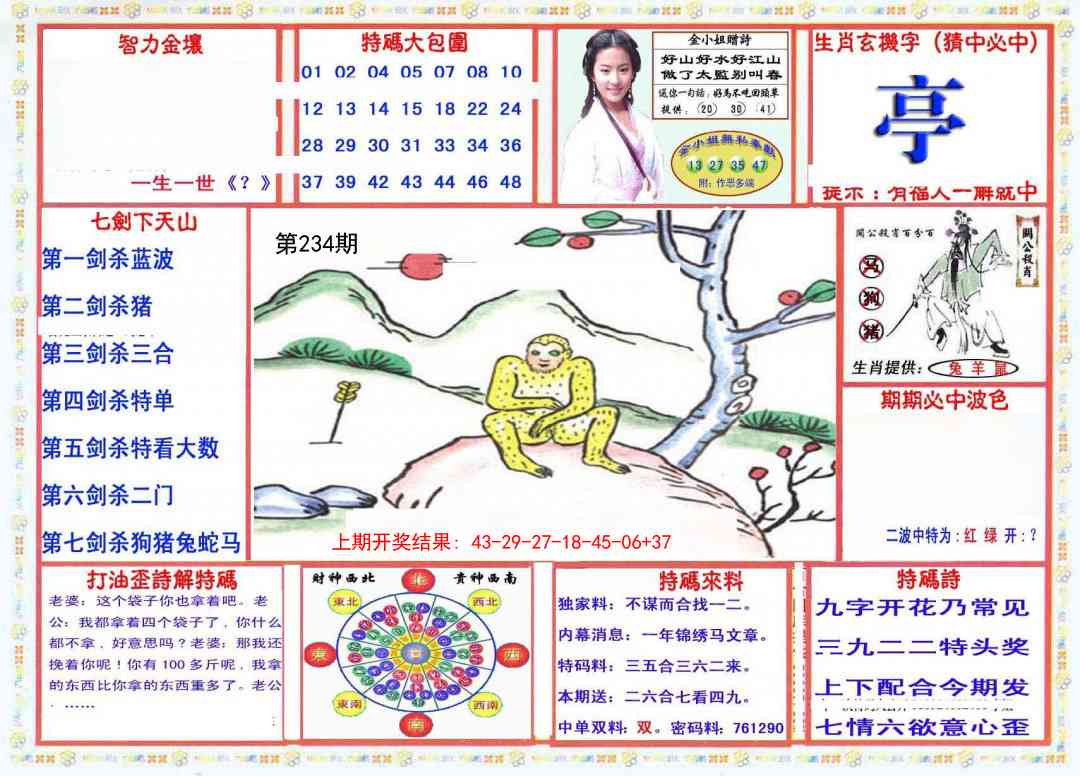 智力金壤
一生一世《？》
特碼大包圍
01 02 04 05 07 08 10
12 13 14 15 18 22 24
28 29 30 31 33 34 36
37 39 42 43 44 46 48
金小姐赠詩
好山好水好江山
做了太監别叫春
送你一句話：好馬不吃回頭草
提供：(20) 30) (41)
金小姐無私奉獻
13 27 35 47
附：作恶多端
生肖玄機字（猜中必中）
亭
提示：有福人一解就中
七劍下天山
第一剑杀蓝波
第二剑杀猪
第三剑杀三合
第四剑杀特单
第五剑杀特看大数
第六剑杀二门
第七剑杀狗猪兔蛇马
第234期
上期开奖结果：43-29-27-18-45-06+37
関公殺宵百分百
關公殺肖
马
狗
猪
生肖提供：兔 羊 鼠
期期必中波色
二波中特为：红 绿 开：？
打油歪詩解特碼
老婆：这个袋子你也拿着吧。老
公：我都拿着四个袋子了，你什么
都不拿，好意思吗？老婆：那我还
挽着你呢！你有 100 多斤呢，我拿
的东西比你拿的东西重多了。老公
：......
財神西北
貴神西南
北
東北
西北
东
西
東南
西南
南
特碼來料
独家料：不谋而合找一二。
内幕消息：一年锦绣马文章。
特码料：三五合三六二来。
本期送：二六合七看四九。
中单双料：双。密码料：761290
特碼詩
九字开花乃常见
三九二二特头奖
上下配合今期发
七情六欲意心歪